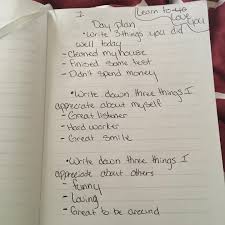 1
Learn to
Love
You
Day plan
• Write 3 things you did
well today
- Cleaned my house
- Finised some test
- Didn't spend money
• Write down three things I
appreciate about myself
- Great listener
- Hard worker
- Great smile
• Write down three things I
appreciate about others
- funny
- Loving
- Great to be around